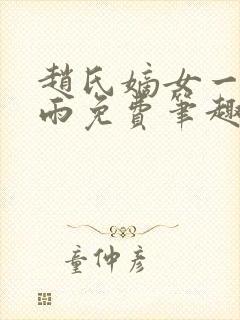 趙氏嫡女一
雨免費筆趣
童仲彥